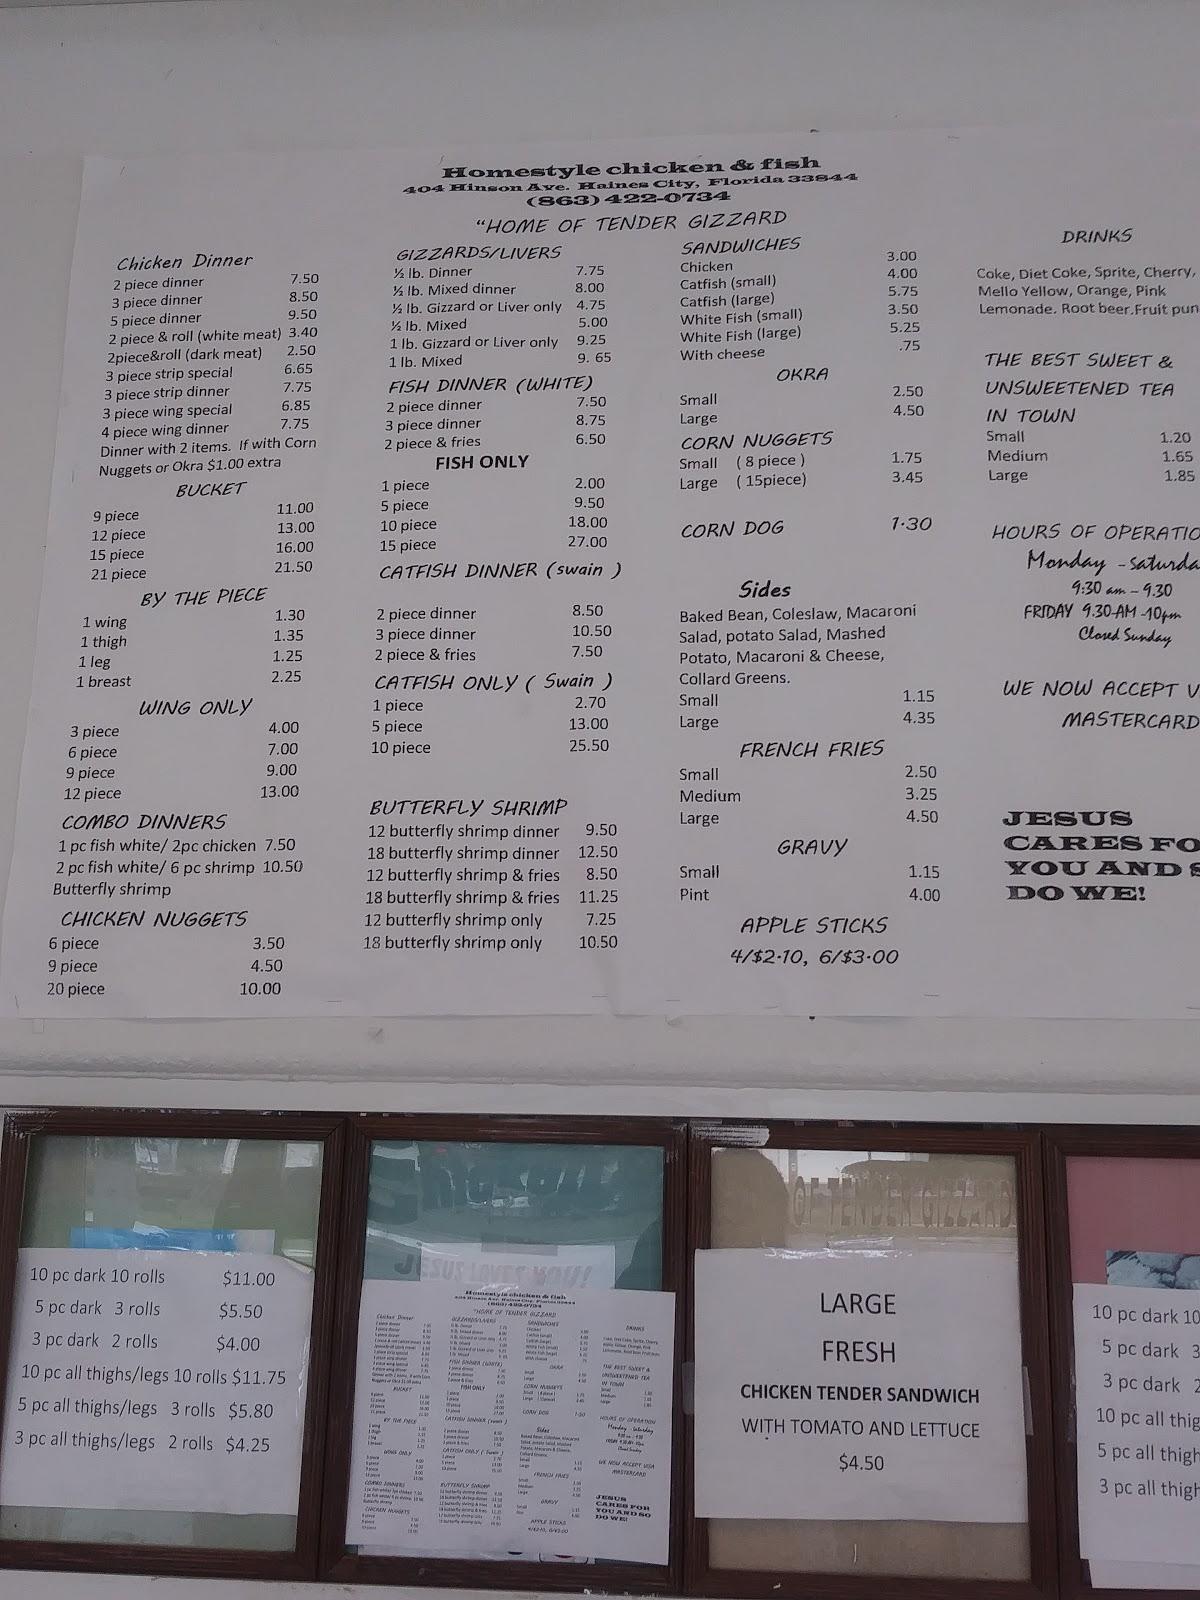 Homestyle chicken & fish
404 Hinson Ave. Haines City, Florida 33844
(863) 422-0734
"HOME OF TENDER GIZZARD
Chicken Dinner
2 piece dinner 7.50
3 piece dinner 8.50
5 piece dinner 9.50
2 piece & roll (white meat) 3.40
2piece&roll (dark meat) 2.50
3 piece strip special 6.65
3 piece strip dinner 7.75
3 piece wing special 6.85
4 piece wing dinner 7.75
Dinner with 2 items. If with Corn
Nuggets or Okra $1.00 extra
BUCKET
9 piece 11.00
12 piece 13.00
15 piece 16.00
21 piece 21.50
BY THE PIECE
1 wing 1.30
1 thigh 1.35
1 leg 1.25
1 breast 2.25
WING ONLY
3 piece 4.00
6 piece 7.00
9 piece 9.00
12 piece 13.00
COMBO DINNERS
1 pc fish white/ 2pc chicken 7.50
2 pc fish white/ 6 pc shrimp 10.50
Butterfly shrimp
CHICKEN NUGGETS
6 piece 3.50
9 piece 4.50
20 piece 10.00
GIZZARDS/LIVERS
½ lb. Dinner 7.75
½ lb. Mixed dinner 8.00
½ lb. Gizzard or Liver only 4.75
½ lb. Mixed 5.00
1 lb. Gizzard or Liver only 9.25
1 lb. Mixed 9. 65
FISH DINNER (WHITE)
2 piece dinner 7.50
3 piece dinner 8.75
2 piece & fries 6.50
FISH ONLY
1 piece 2.00
5 piece 9.50
10 piece 18.00
15 piece 27.00
CATFISH DINNER (swain )
2 piece dinner 8.50
3 piece dinner 10.50
2 piece & fries 7.50
CATFISH ONLY ( Swain )
1 piece 2.70
5 piece 13.00
10 piece 25.50
BUTTERFLY SHRIMP
12 butterfly shrimp dinner 9.50
18 butterfly shrimp dinner 12.50
12 butterfly shrimp & fries 8.50
18 butterfly shrimp & fries 11.25
12 butterfly shrimp only 7.25
18 butterfly shrimp only 10.50
SANDWICHES
Chicken 3.00
Catfish (small) 4.00
Catfish (large) 5.75
White Fish (small) 3.50
White Fish (large) 5.25
With cheese .75
OKRA
Small 2.50
Large 4.50
CORN NUGGETS
Small ( 8 piece ) 1.75
Large ( 15piece) 3.45
CORN DOG 1.30
Sides
Baked Bean, Coleslaw, Macaroni
Salad, potato Salad, Mashed
Potato, Macaroni & Cheese,
Collard Greens.
Small 1.15
Large 4.35
FRENCH FRIES
Small 2.50
Medium 3.25
Large 4.50
GRAVY
Small 1.15
Pint 4.00
APPLE STICKS
4/$2.10, 6/$3.00
DRINKS
Coke, Diet Coke, Sprite, Cherry,
Mello Yellow, Orange, Pink
Lemonade. Root beer,Fruit pun
THE BEST SWEET &
UNSWEETENED TEA
IN TOWN
Small 1.20
Medium 1.65
Large 1.85
HOURS OF OPERATIO
Monday - saturda
9:30 am - 9.30
FRIDAY 9.30-AM -10pm
Closed Sunday
WE NOW ACCEPT V
MASTERCARD
JESUS
CARES FO
YOU AND S
DO WE!
10 pc dark 10 rolls $11.00
5 pc dark 3 rolls $5.50
3 pc dark 2 rolls $4.00
10 pc all thighs/legs 10 rolls $11.75
5 pc all thighs/legs 3 rolls $5.80
3 pc all thighs/legs 2 rolls $4.25
JESUS LOVES YOU!
Homestyle chicken & fish
404 Hinson Ave. Haines City, Florida 33844
(863) 422-0734
"HOME OF TENDER GIZZARD
OF TENDER GIZZARD
LARGE
FRESH
CHICKEN TENDER SANDWICH
WITH TOMATO AND LETTUCE
$4.50
10 pc dark 10
5 pc dark 3
3 pc dark 2
10 pc all thig
5 pc all thigh
3 pc all thigh